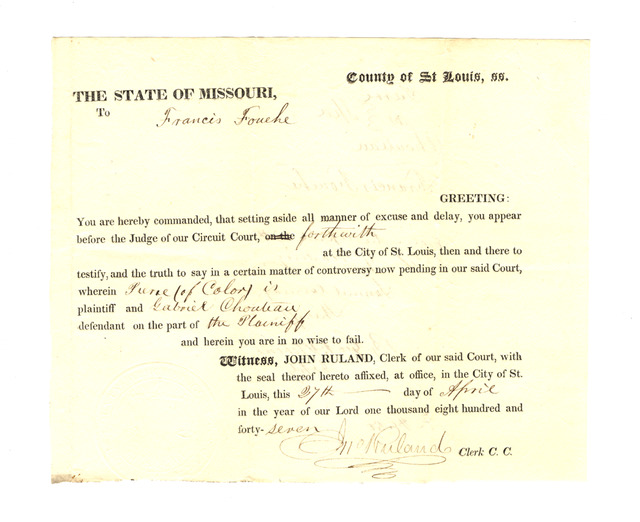 County of St Louis, ss.
THE STATE OF MISSOURI,
To
Francis Fouche
GREETING:
You are hereby commanded, that setting aside all manner of excuse and delay, you appear
before the Judge of our Circuit Court, on the forthwith
at the City of St. Louis, then and there to
testify, and the truth to say in a certain matter of controversy now pending in our said Court,
wherein (of Color) is
plaintiff and Gabriel Chouteau
defendant on the part of the Plaintiff
and herein you are in no wise to fail.
Witness, JOHN RULAND, Clerk of our said Court, with
the seal thereof hereto affixed, at office, in the City of St.
Louis, this 27th — day of April
in the year of our Lord one thousand eight hundred and
forty-seven
Jno Ruland Clerk C. C.